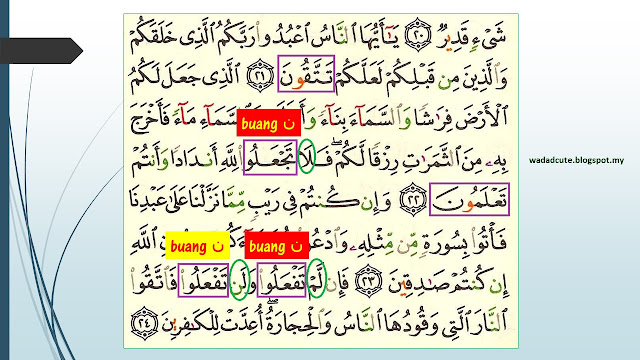 شَىْءٍ قَدِيرٌ ٢٠ يَٰٓأَيُّهَا ٱلنَّاسُ ٱعْبُدُوا۟ رَبَّكُمُ ٱلَّذِى خَلَقَكُمْ
وَٱلَّذِينَ مِن قَبْلِكُمْ لَعَلَّكُمْ تَتَّقُونَ ٢١ ٱلَّذِى جَعَلَ لَكُمُ
ٱلْأَرْضَ فِرَٰشًا وَٱلسَّمَآءَ بِنَآءً ٱلسَّمَآءِ مَآءً فَأَخْرَجَ
buang ن
بِهِۦ مِنَ ٱلثَّمَرَٰتِ رِزْقًا لَّكُمْ ۖ فَلَا تَجْعَلُوا۟ لِلَّهِ أَندَادًا وَأَنتُمْ
wadadcute.blogspot.my
تَعْلَمُونَ ٢٢ وَإِن كُنتُمْ فِى رَيْبٍ مِّمَّا نَزَّلْنَا عَلَىٰ عَبْدِنَا
فَأْتُوا۟ بِسُورَةٍ مِّن مِّثْلِهِۦ ٱللَّهِ
buang ن
buang ن
إِن كُنتُمْ صَٰدِقِينَ ٢٣ فَإِن لَّمْ تَفْعَلُوا۟ وَلَن تَفْعَلُوا۟ فَٱتَّقُوا۟
ٱلنَّارَ ٱلَّتِى وَقُودُهَا ٱلنَّاسُ وَٱلْحِجَارَةُ ۖ أُعِدَّتْ لِلْكَٰفِرِينَ ٢٤